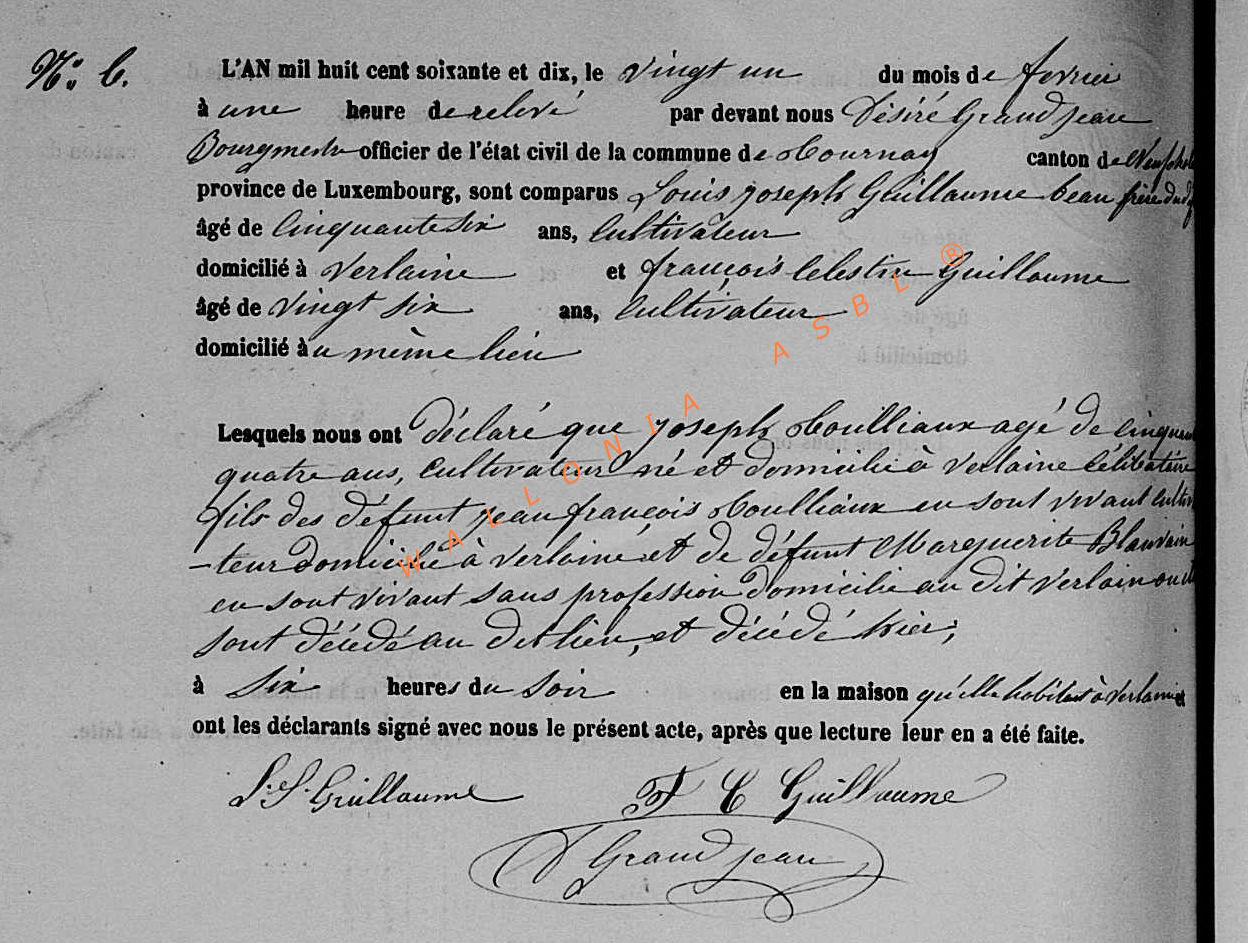 N° 6.
L'AN mil huit cent soixante et dix, le vingt un du mois de fevrier
à une heure de relevé par devant nous Désiré Grandjean
Bourgmestre officier de l'état civil de la commune de Tournay canton de
province de Luxembourg, sont comparus Louis joseph Guillaume beau frère du
âgé de cinquante six ans, cultivateur
domicilié à verlaine et françois Celestin Guillaume
âgé de vingt six ans, cultivateur
domicilié au même lieu
Lesquels nous ont déclaré que joseph agé de
quatre ans, cultivateur né et domicilié à verlaine Célibataire
fils des défunt jean françois en sont vivant
teur domicilié à verlaine et de défunt Marguerite
en sont vivant sans profession domicilié au dit verlain
sont décédé au dit lieu, et décédé hier;
à six heures du soir en la maison qu'elle à verlaine
ont les déclarants signé avec nous le présent acte, après que lecture leur en a été faite.
L. J. Guillaume F C Guillaume
D Grandjean
WALLONIA ASBL ®